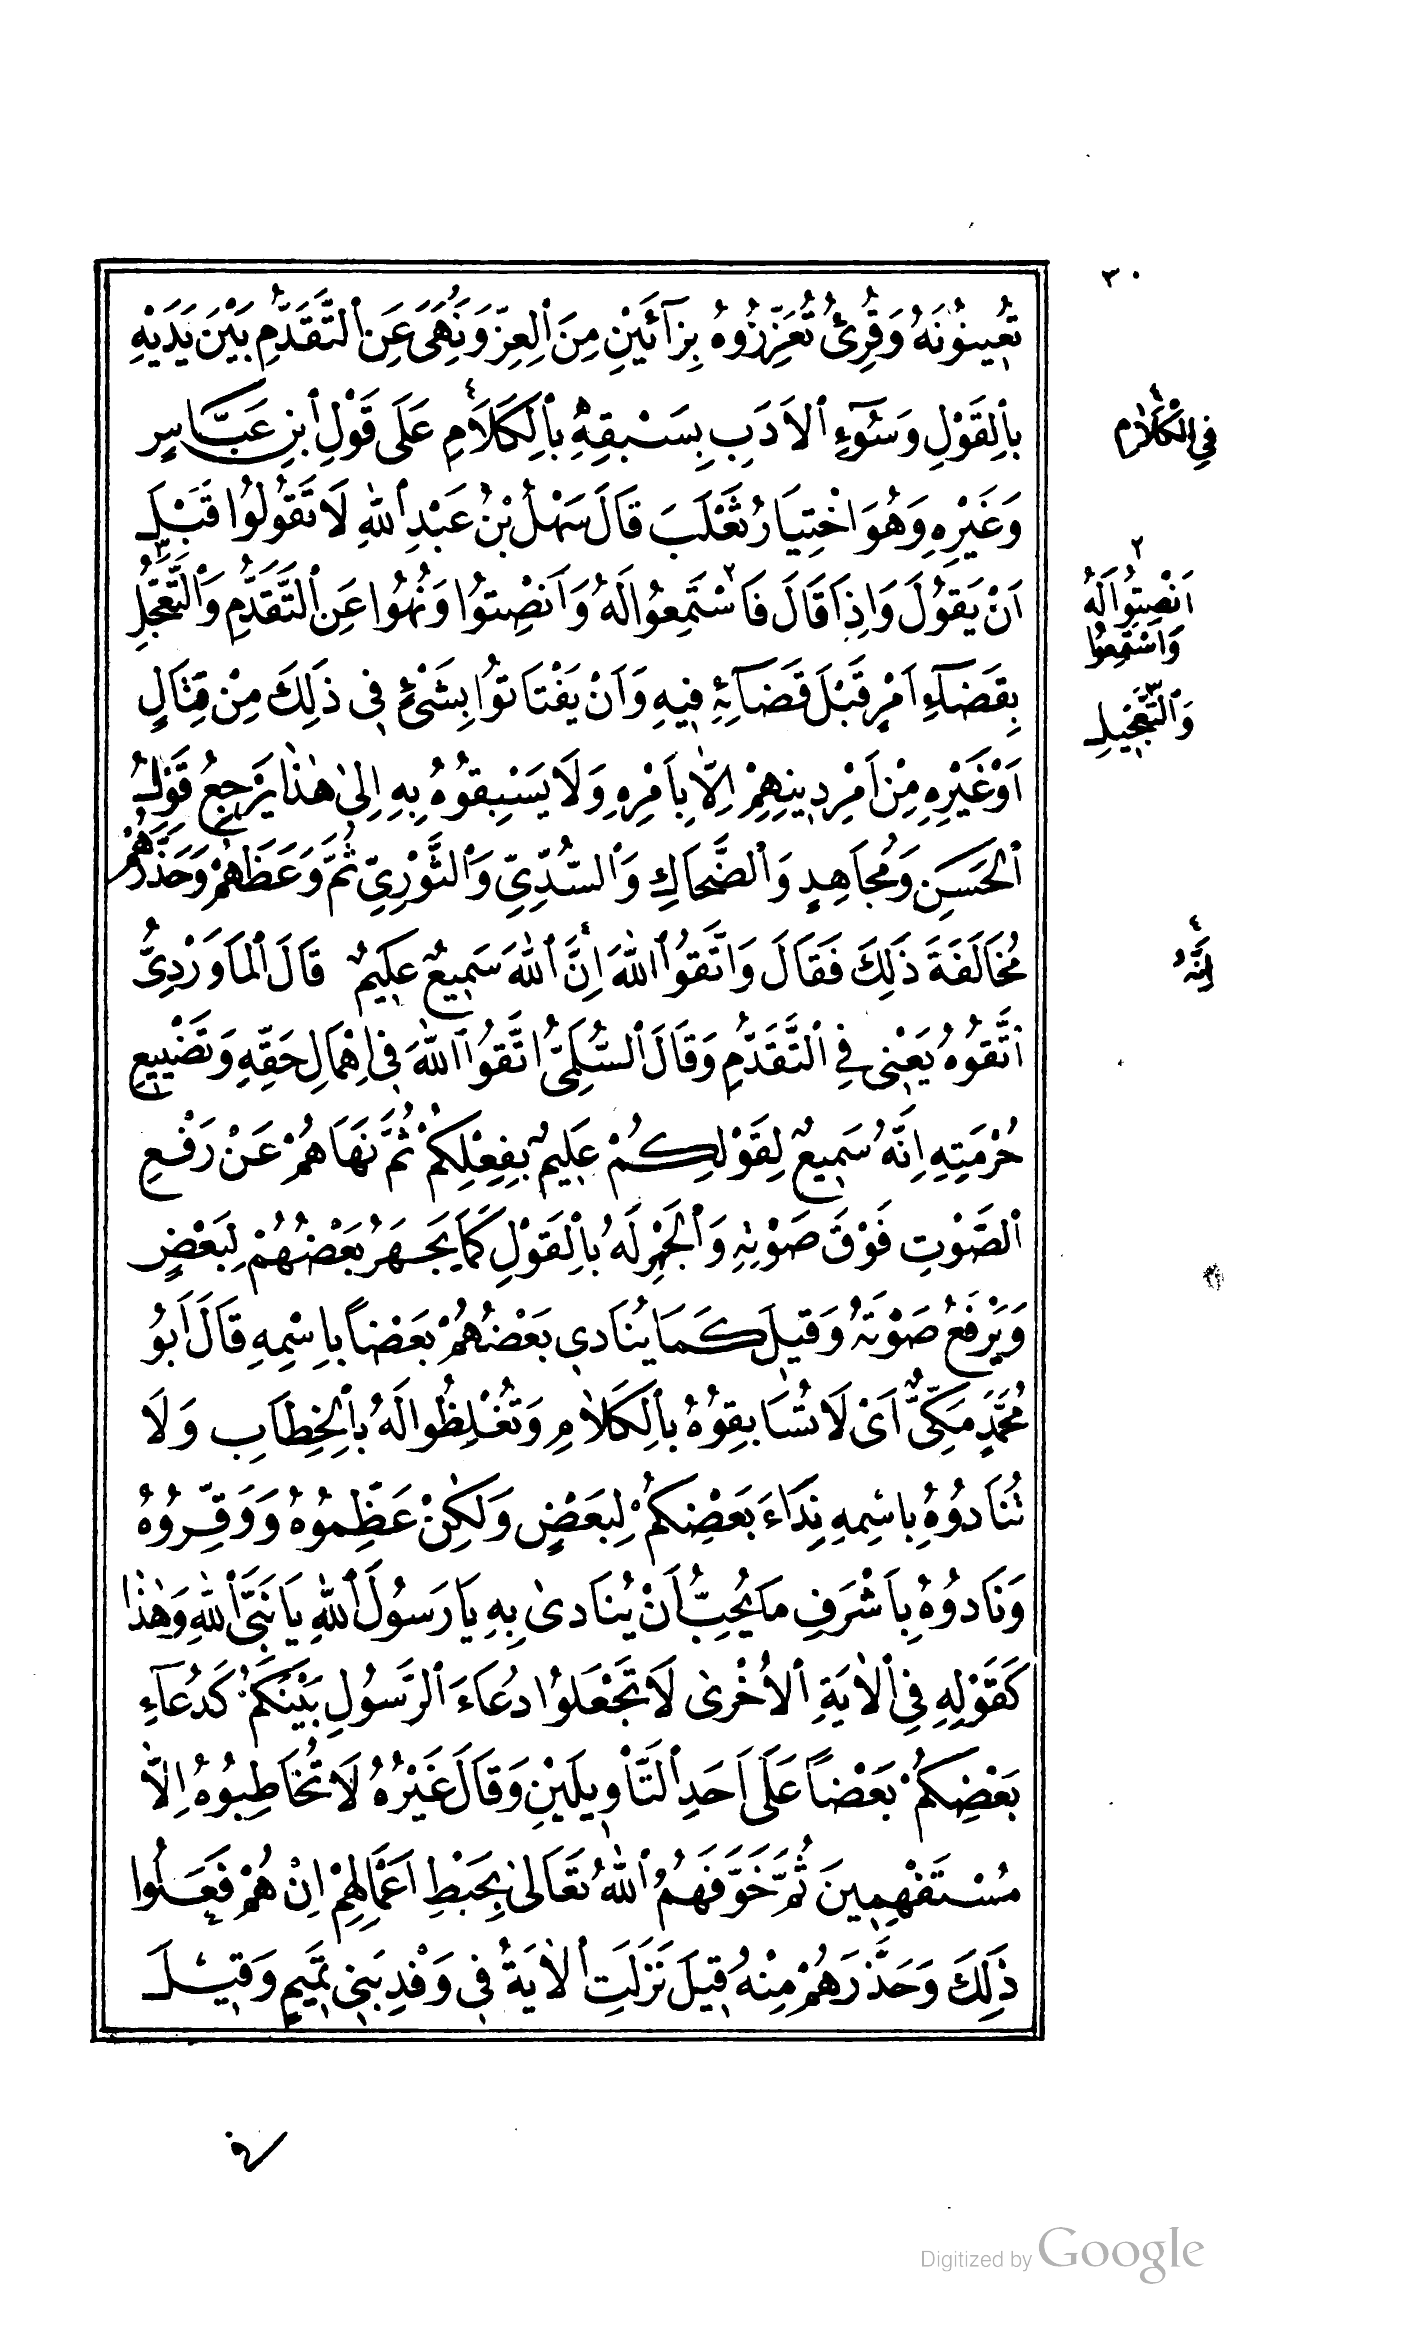 ٣٠
تُعِينُونَهُ وَقُرِئَ تُعَزِّزُوهُ بِزَآئَيْنِ مِنَ ٱلْعِزِّ وَنُهِىَ عَنِ ٱلتَّقَدُّمِ بَيْنَ يَدَيْهِ
بِٱلْقَوْلِ وَسُوٓءِ ٱلاَدَبِ بِسَبْقِهِ بِٱلْكَلَامِ٤ عَلَى قَوْلِ ٱبْنِ عَبَّاسٍ
وَغَيْرِهِ وَهُوَ اخْتِيَارُ ثَعْلَبَ قَالَ سَهْلُ بْنُ عَبْدِ ٱللّٰهِ لَا تَقُولُوا قَبْلَ
اَنْ يَقُولَ وَاِذَا قَالَ فَاسْتَمِعُوا٢ لَهُ وَاَنْصِتُوا وَنُهُوا عَنِ ٱلتَّقَدُّمِ وَٱلتَّعَجُّلِ٣
بِقَضَآءِ اَمْرٍ قَبْلَ قَضَآئِهِ فِيهِ وَاَنْ يَفْتَاتُوا بِشَىْءٍ فِى ذٰلِكَ مِنْ قِتَالٍ
اَوْ غَيْرِهِ مِنْ اَمْرِ دِينِهِمْ اِلَّا بِاَمْرِهِ وَلَا يَسْبِقُوهُ بِهِ اِلٰى هٰذَا يَرْجِعُ قَوْلُ
ٱلْحَسَنِ وَمُجَاهِدٍ وَٱلضَّحَّاكِ وَٱلسُّدِّىِّ وَٱلثَّوْرِىِّ ثُمَّ وَعَظَهُمْ وَحَذَّرَهُمْ
مُخَالَفَةَ ذٰلِكَ فَقَالَ وَاتَّقُوا ٱللّٰهَ اِنَّ٤ ٱللّٰهَ سَمِيعٌ عَلِيمٌ قَالَ ٱلْمَاوَرْدِىُّ
اتَّقُوهُ يَعْنِى فِى ٱلتَّقَدُّمِ وَقَالَ ٱلسُّلَمِىُّ اتَّقُوا ٱللّٰهَ فِى اِهْمَالِ حَقِّهِ وَتَضْيِيعِ
حُرْمَتِهِ اِنَّهُ سَمِيعٌ لِقَوْلِكُمْ عَلِيمٌ بِفِعْلِكُمْ ثُمَّ نَهَاهُمْ عَنْ رَفْعِ
ٱلصَّوْتِ فَوْقَ صَوْتِهِ وَٱلْجَهْرِ لَهُ بِٱلْقَوْلِ كَمَا يَجْهَرُ بَعْضُهُمْ لِبَعْضٍ
وَيَرْفَعُ صَوْتَهُ وَقِيلَ كَمَا يُنَادِى بَعْضُهُمْ بَعْضاً بِاسْمِهِ قَالَ اَبُو
مُحَمَّدٍ مَكِّىٌّ اَىْ لَا تُسَابِقُوهُ بِٱلْكَلَامِ وَتُغْلِظُوا لَهُ بِٱلْخِطَابِ وَلَا
تُنَادُوهُ بِاسْمِهِ نِدَاءَ بَعْضِكُمْ لِبَعْضٍ وَلٰكِنْ عَظِّمُوهُ وَوَقِّرُوهُ
وَنَادُوهُ بِاَشْرَفِ مَا يُحِبُّ اَنْ يُنَادٰى بِهِ يَا رَسُولَ ٱللّٰهِ يَا نَبِىَّ ٱللّٰهِ وَهٰذَا
كَقَوْلِهِ فِى ٱلْاٰيَةِ ٱلْاُخْرٰى لَا تَجْعَلُوا دُعَاءَ ٱلرَّسُولِ بَيْنَكُمْ كَدُعَآءِ
بَعْضِكُمْ بَعْضاً عَلَى اَحَدِ ٱلتَّأْوِيلَيْنِ وَقَالَ غَيْرُهُ لَا تُخَاطِبُوهُ اِلَّا
مُسْتَفْهِمِينَ ثُمَّ خَوَّفَهُمُ ٱللّٰهُ تَعَالٰى بِحَبْطِ اَعْمَالِهِمْ اِنْ هُمْ فَعَلُوا
ذٰلِكَ وَحَذَّرَهُمْ مِنْهُ قِيلَ نَزَلَتِ ٱلْاٰيَةُ فِى وَفْدِ بَنِى تَمِيمٍ وَقِيلَ
٤
فِى ٱلْكَلَامِ
٢
اَنْصِتُوا لَهُ
وَاسْتَمِعُوا
٣
وَٱلتَّعْجِيلِ
٤
اِنَّهُ
فى
Digitized by Google